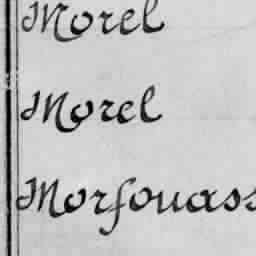 Morel
Morel
Morfouass